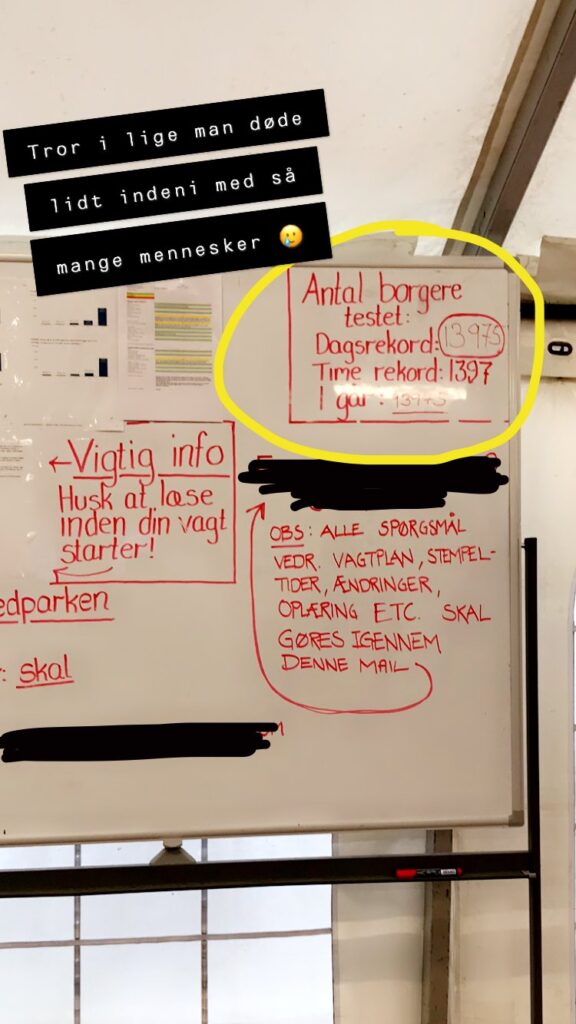 Tror i lige man døde
lidt indeni med så
mange mennesker 🥲
Antal borgere
testet:
Dagsrekord: 13975
Time rekord: 1397
I går : 13975
←Vigtig info
Husk at læse
inden din vagt
starter!
OBS: ALLE SPØRGSMÅL
VEDR. VAGTPLAN, STEMPEL-
TIDER, ÆNDRINGER,
OPLÆRING ETC. SKAL
GØRES IGENNEM
DENNE MAIL
edparken
: skal